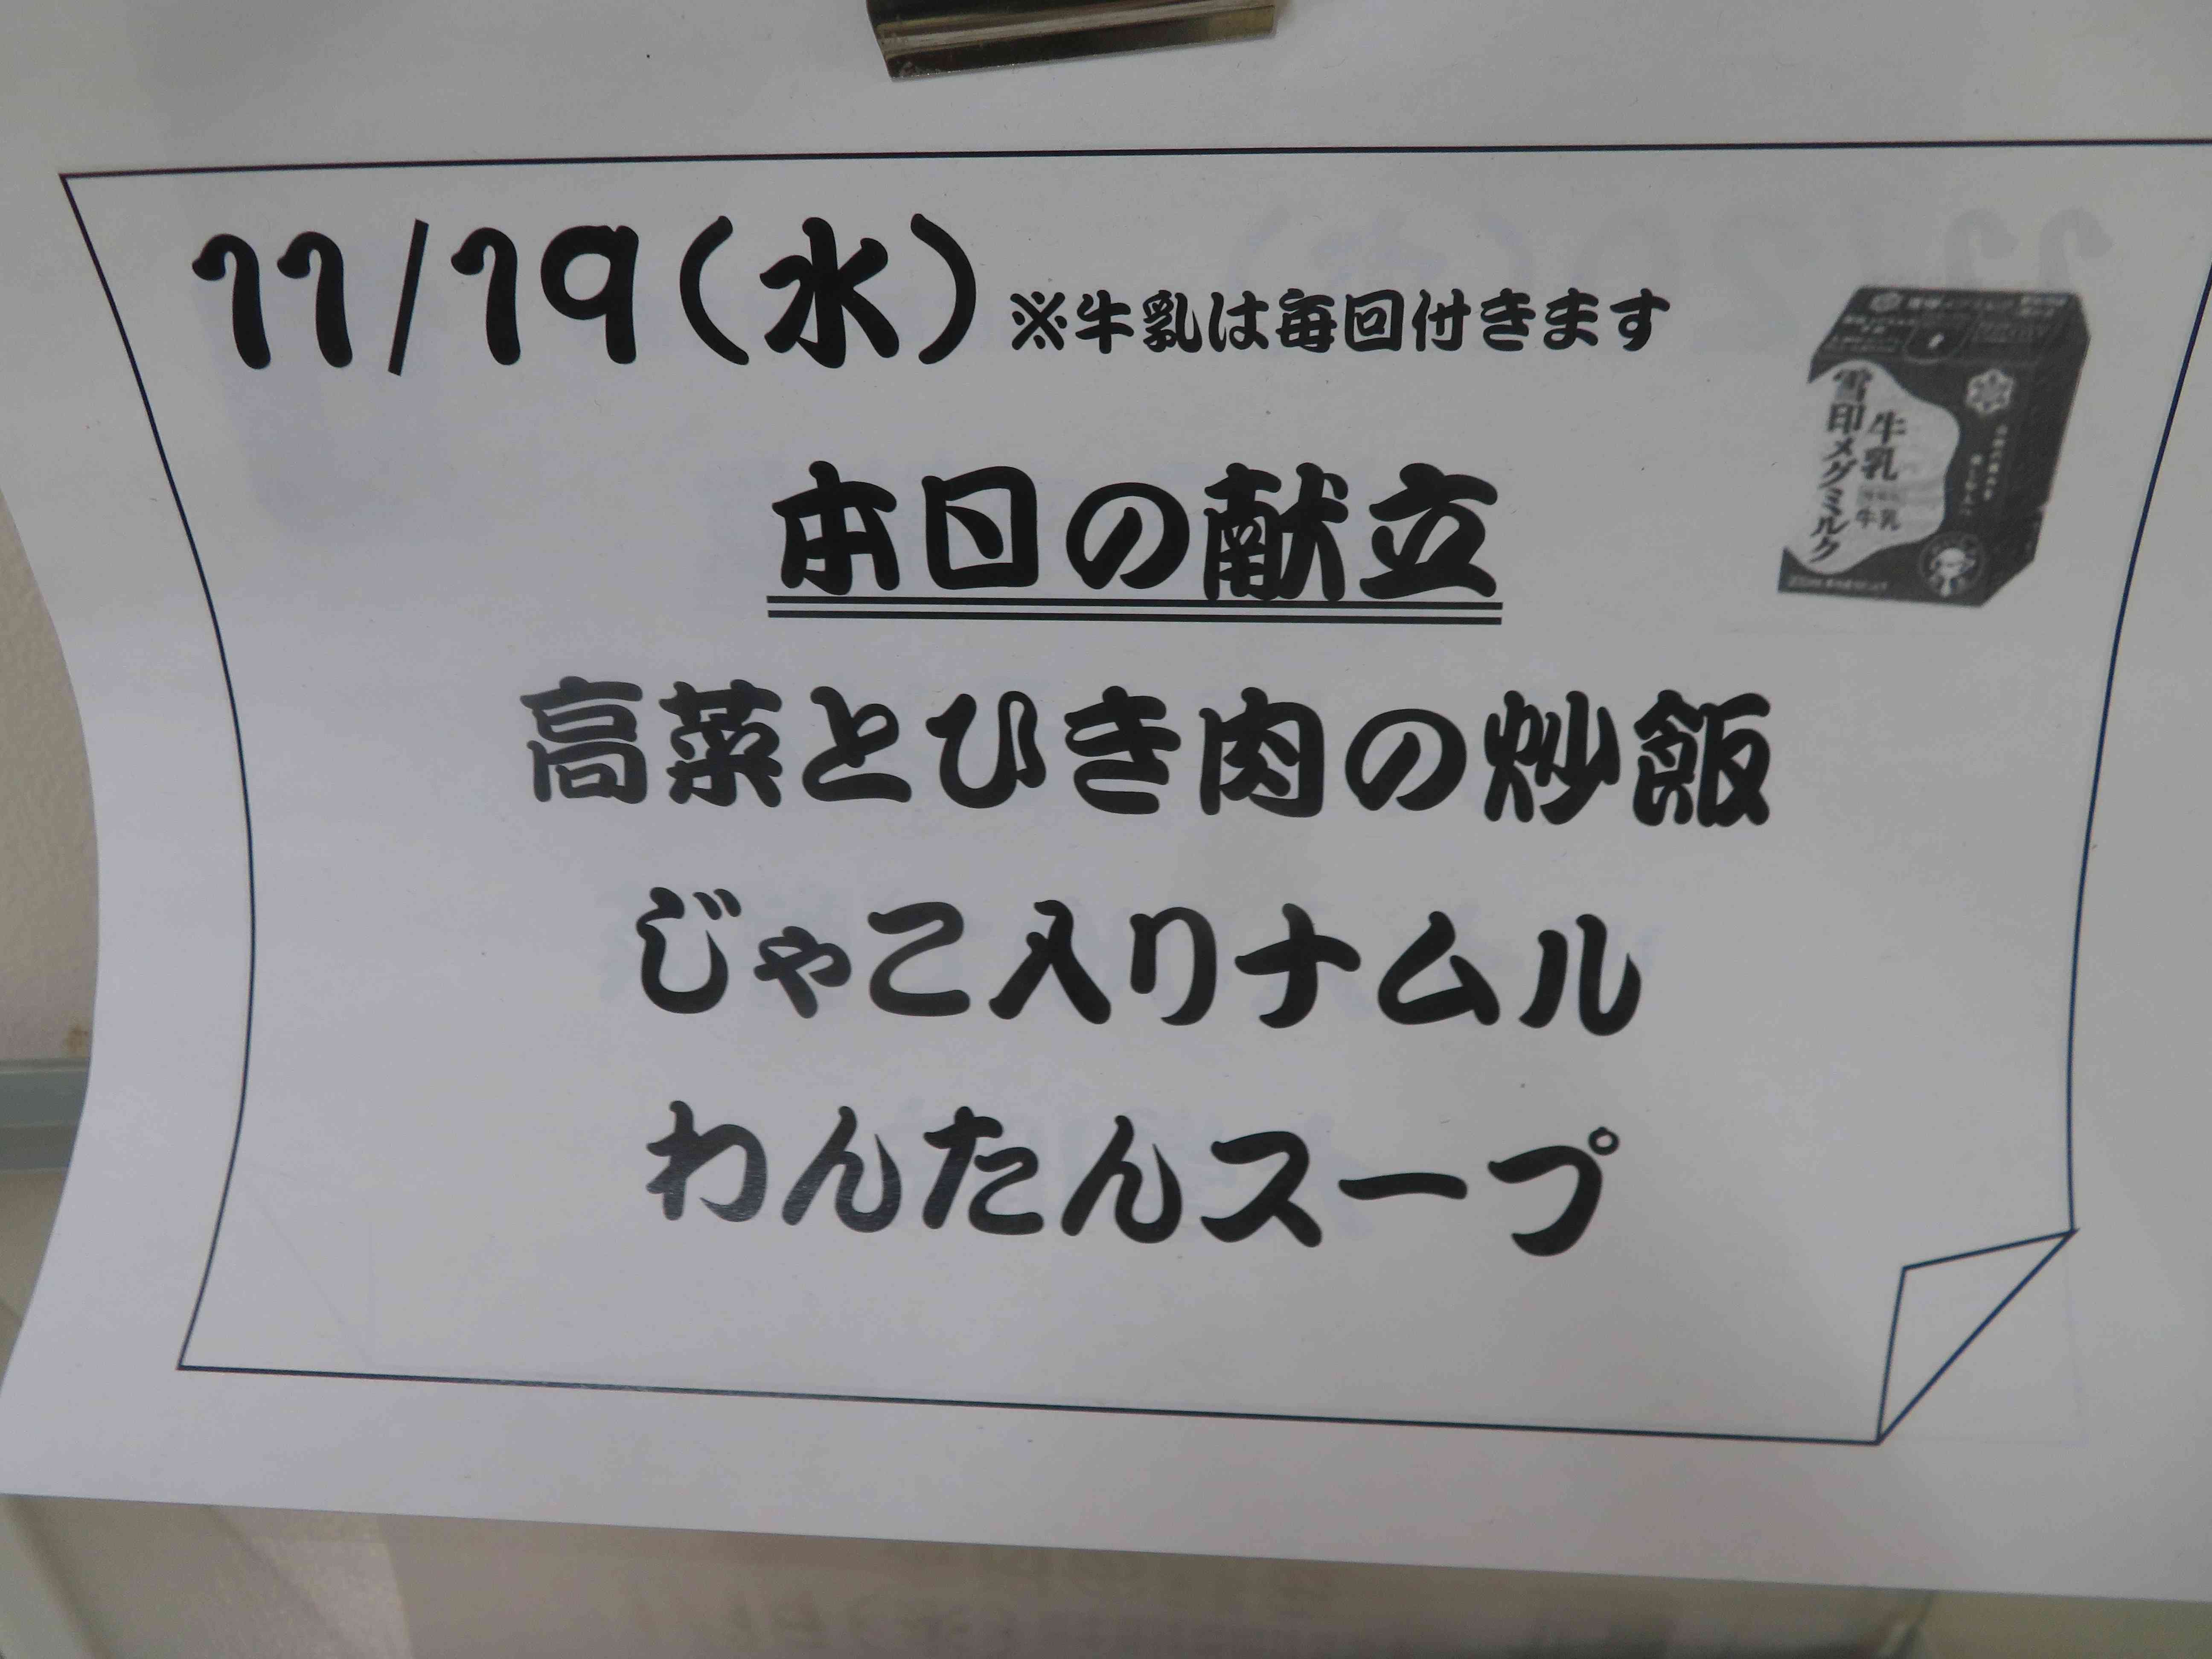 11/19(水)※牛乳は毎回付きます
本日の献立
高菜とひき肉の炒飯
じゃこ入りナムル
わんたんスープ
牛乳
雪印メグミルク
牛乳